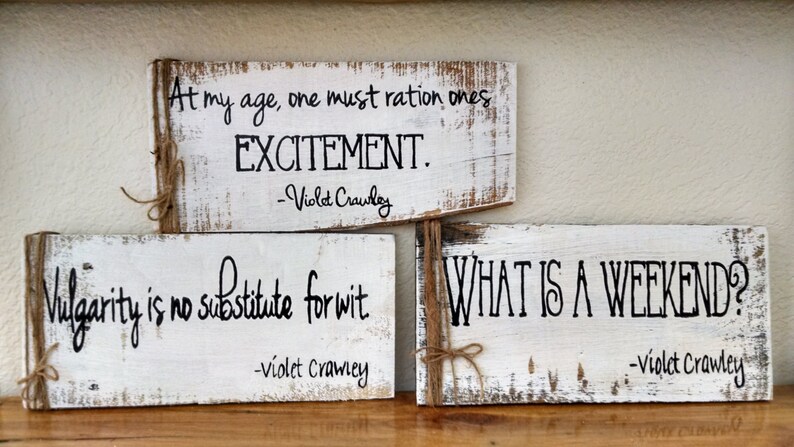 At my age, one must ration ones
EXCITEMENT.
-Violet Crawley
Vulgarity is no substitute for wit.
-Violet Crawley
WHAT IS A WEEKEND?
-Violet Crawley